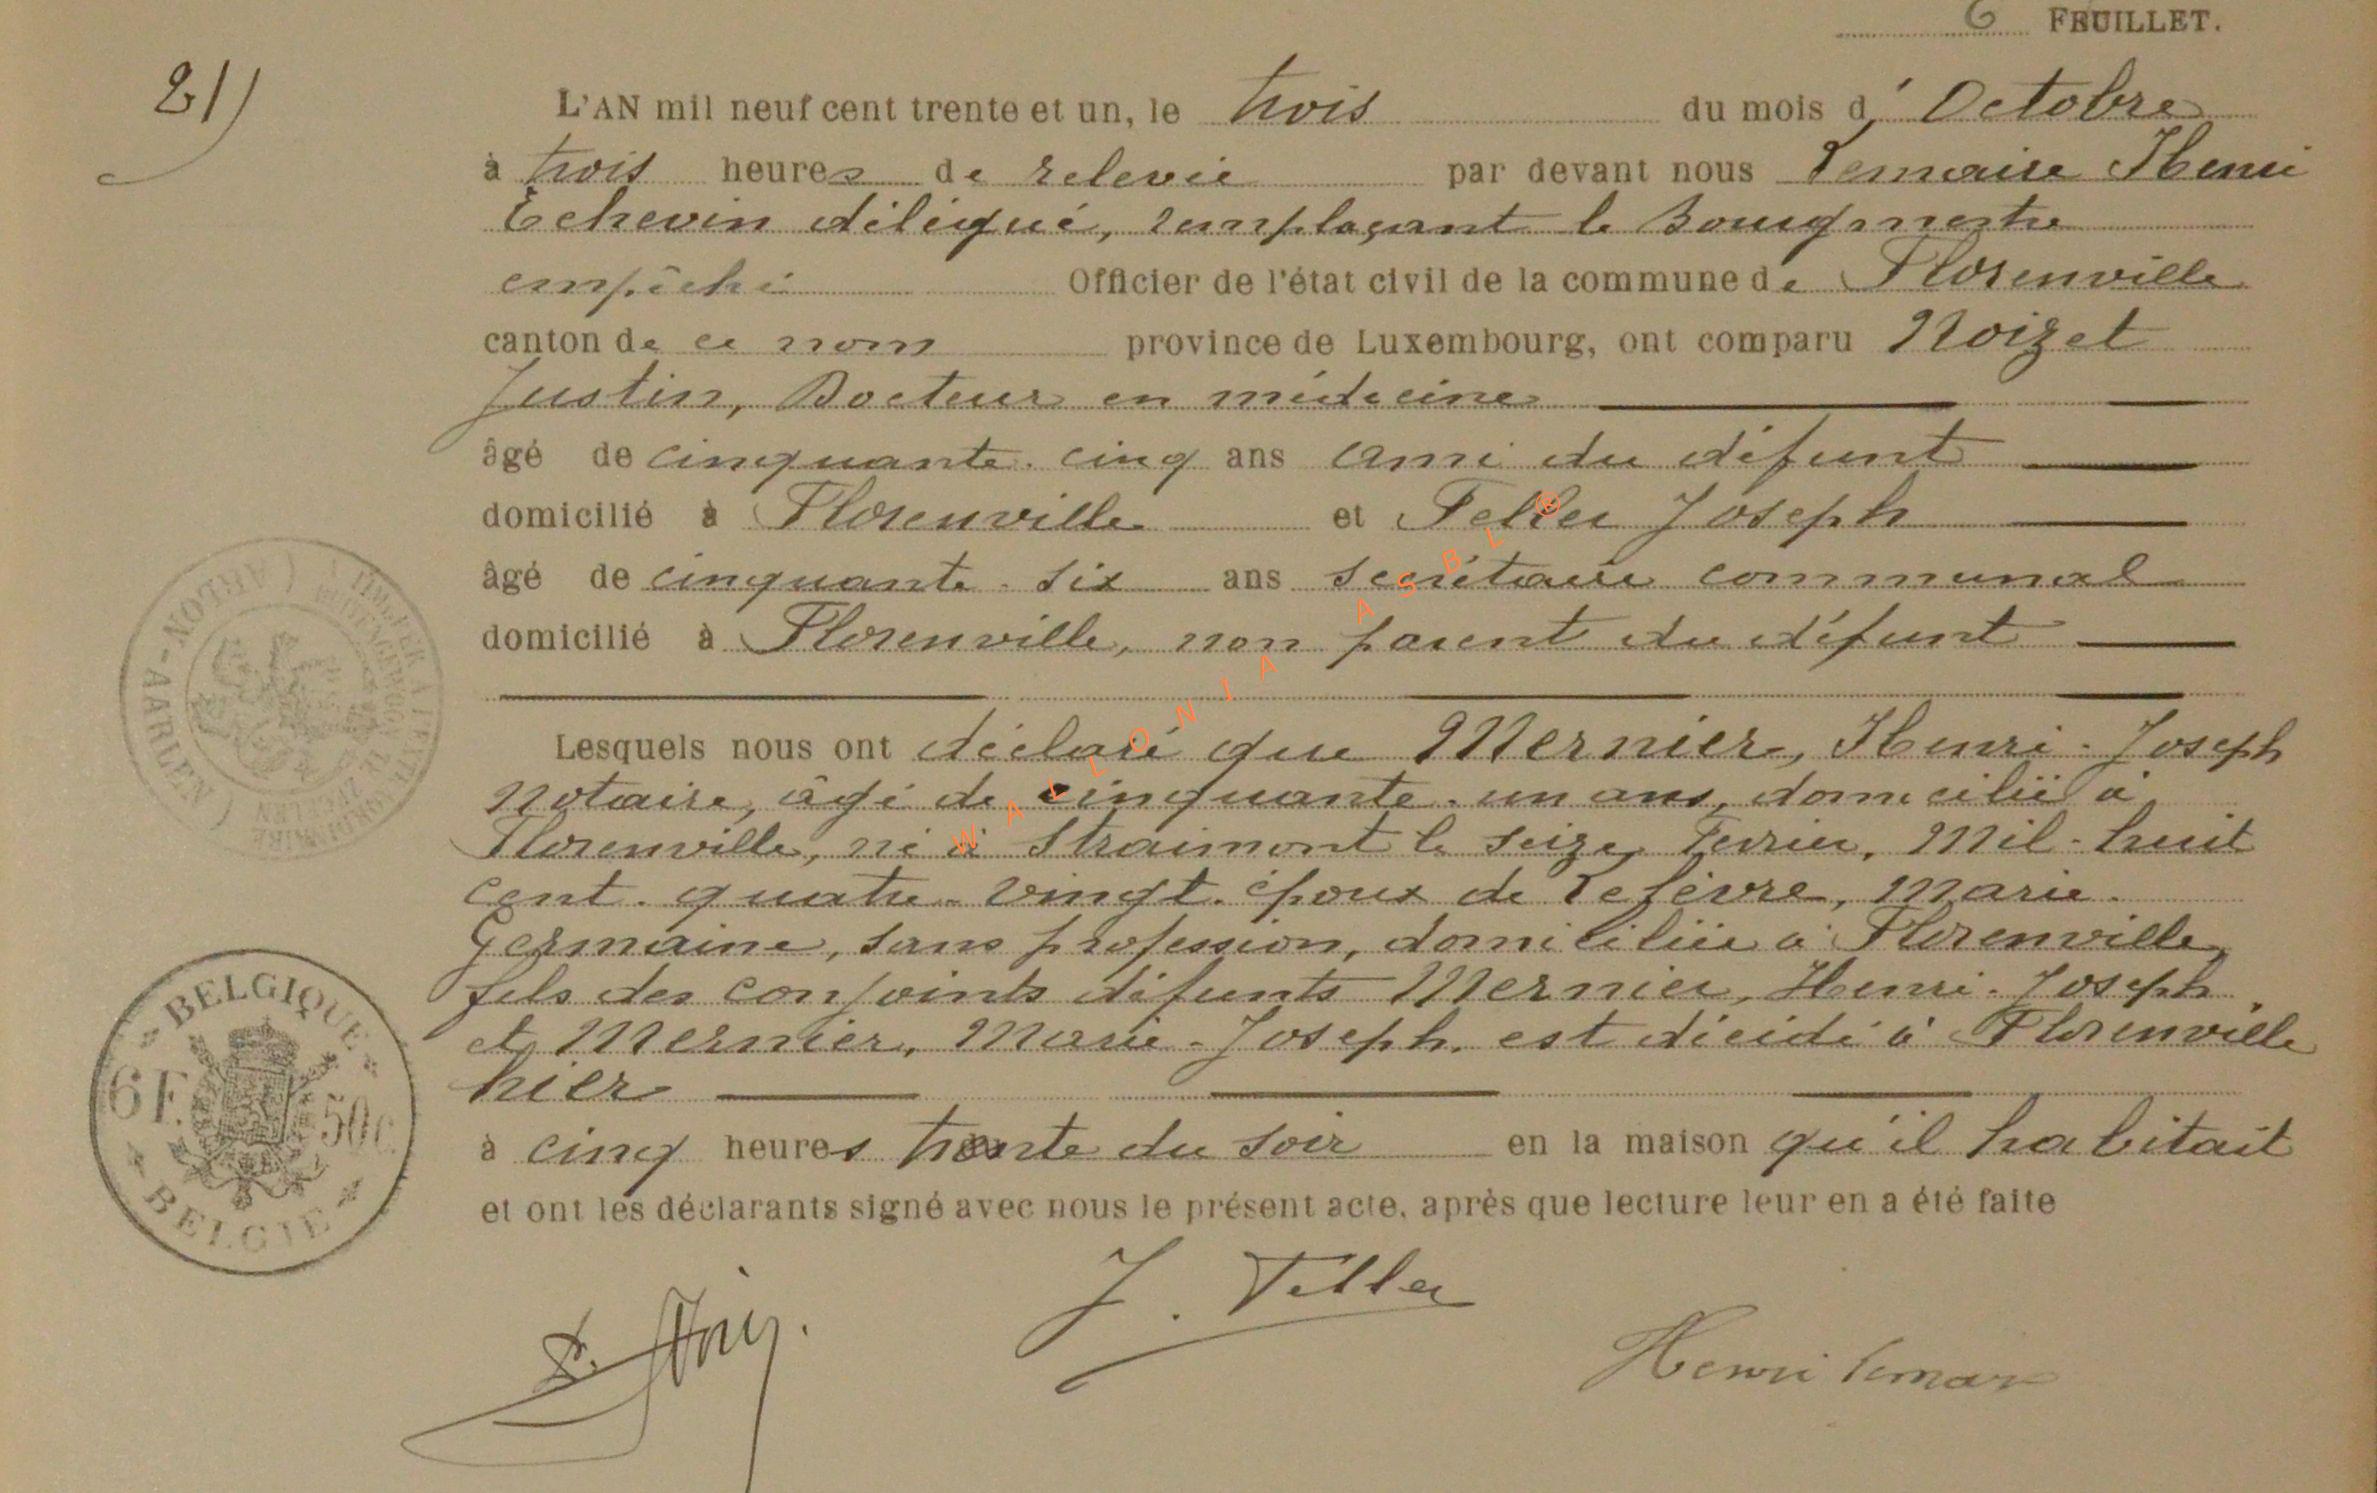 6 FEUILLET.
21)
L'AN mil neuf cent trente et un, le trois du mois d'Octobre
à trois heures de relevée par devant nous Lemaire Henri
Echevin délégué, remplaçant le Bourgmestre
empêché Officier de l'état civil de la commune de Florenville
canton de ce nom province de Luxembourg, ont comparu Noizet
Justin, Docteur en médecine
âgé de cinquante-cinq ans ami du défunt
domicilié à Florenville et Feller Joseph
âgé de cinquante-six ans secrétaire communal
domicilié à Florenville, non parent du défunt
Lesquels nous ont déclaré que Mernier, Henri-Joseph
notaire, âgé de cinquante-un ans, domicilié à
Florenville, né à Straimont le seize Février, Mil-huit
cent-quatre-vingt, époux de Lefèvre, Marie-
Germaine, sans profession, domiciliée à Florenville,
fils des conjoints défunts Mernier, Henri-Joseph
et Mernier, Marie-Joseph, est décédé à Florenville
hier
à cinq heures trente du soir en la maison qu'il habitait
et ont les déclarants signé avec nous le présent acte, après que lecture leur en a été faite
J. Feller
Henri Lemaire
ARLON-NOTA
AARLEN
BELGIQUE
6F. 50c
BELGIË
WALLONIA ASBL ®